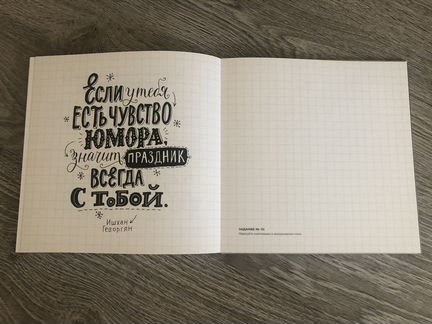 Если у тебя
есть чувство
юмора,
значит праздник
всегда
с тобой.
Ишхан
Геворгян